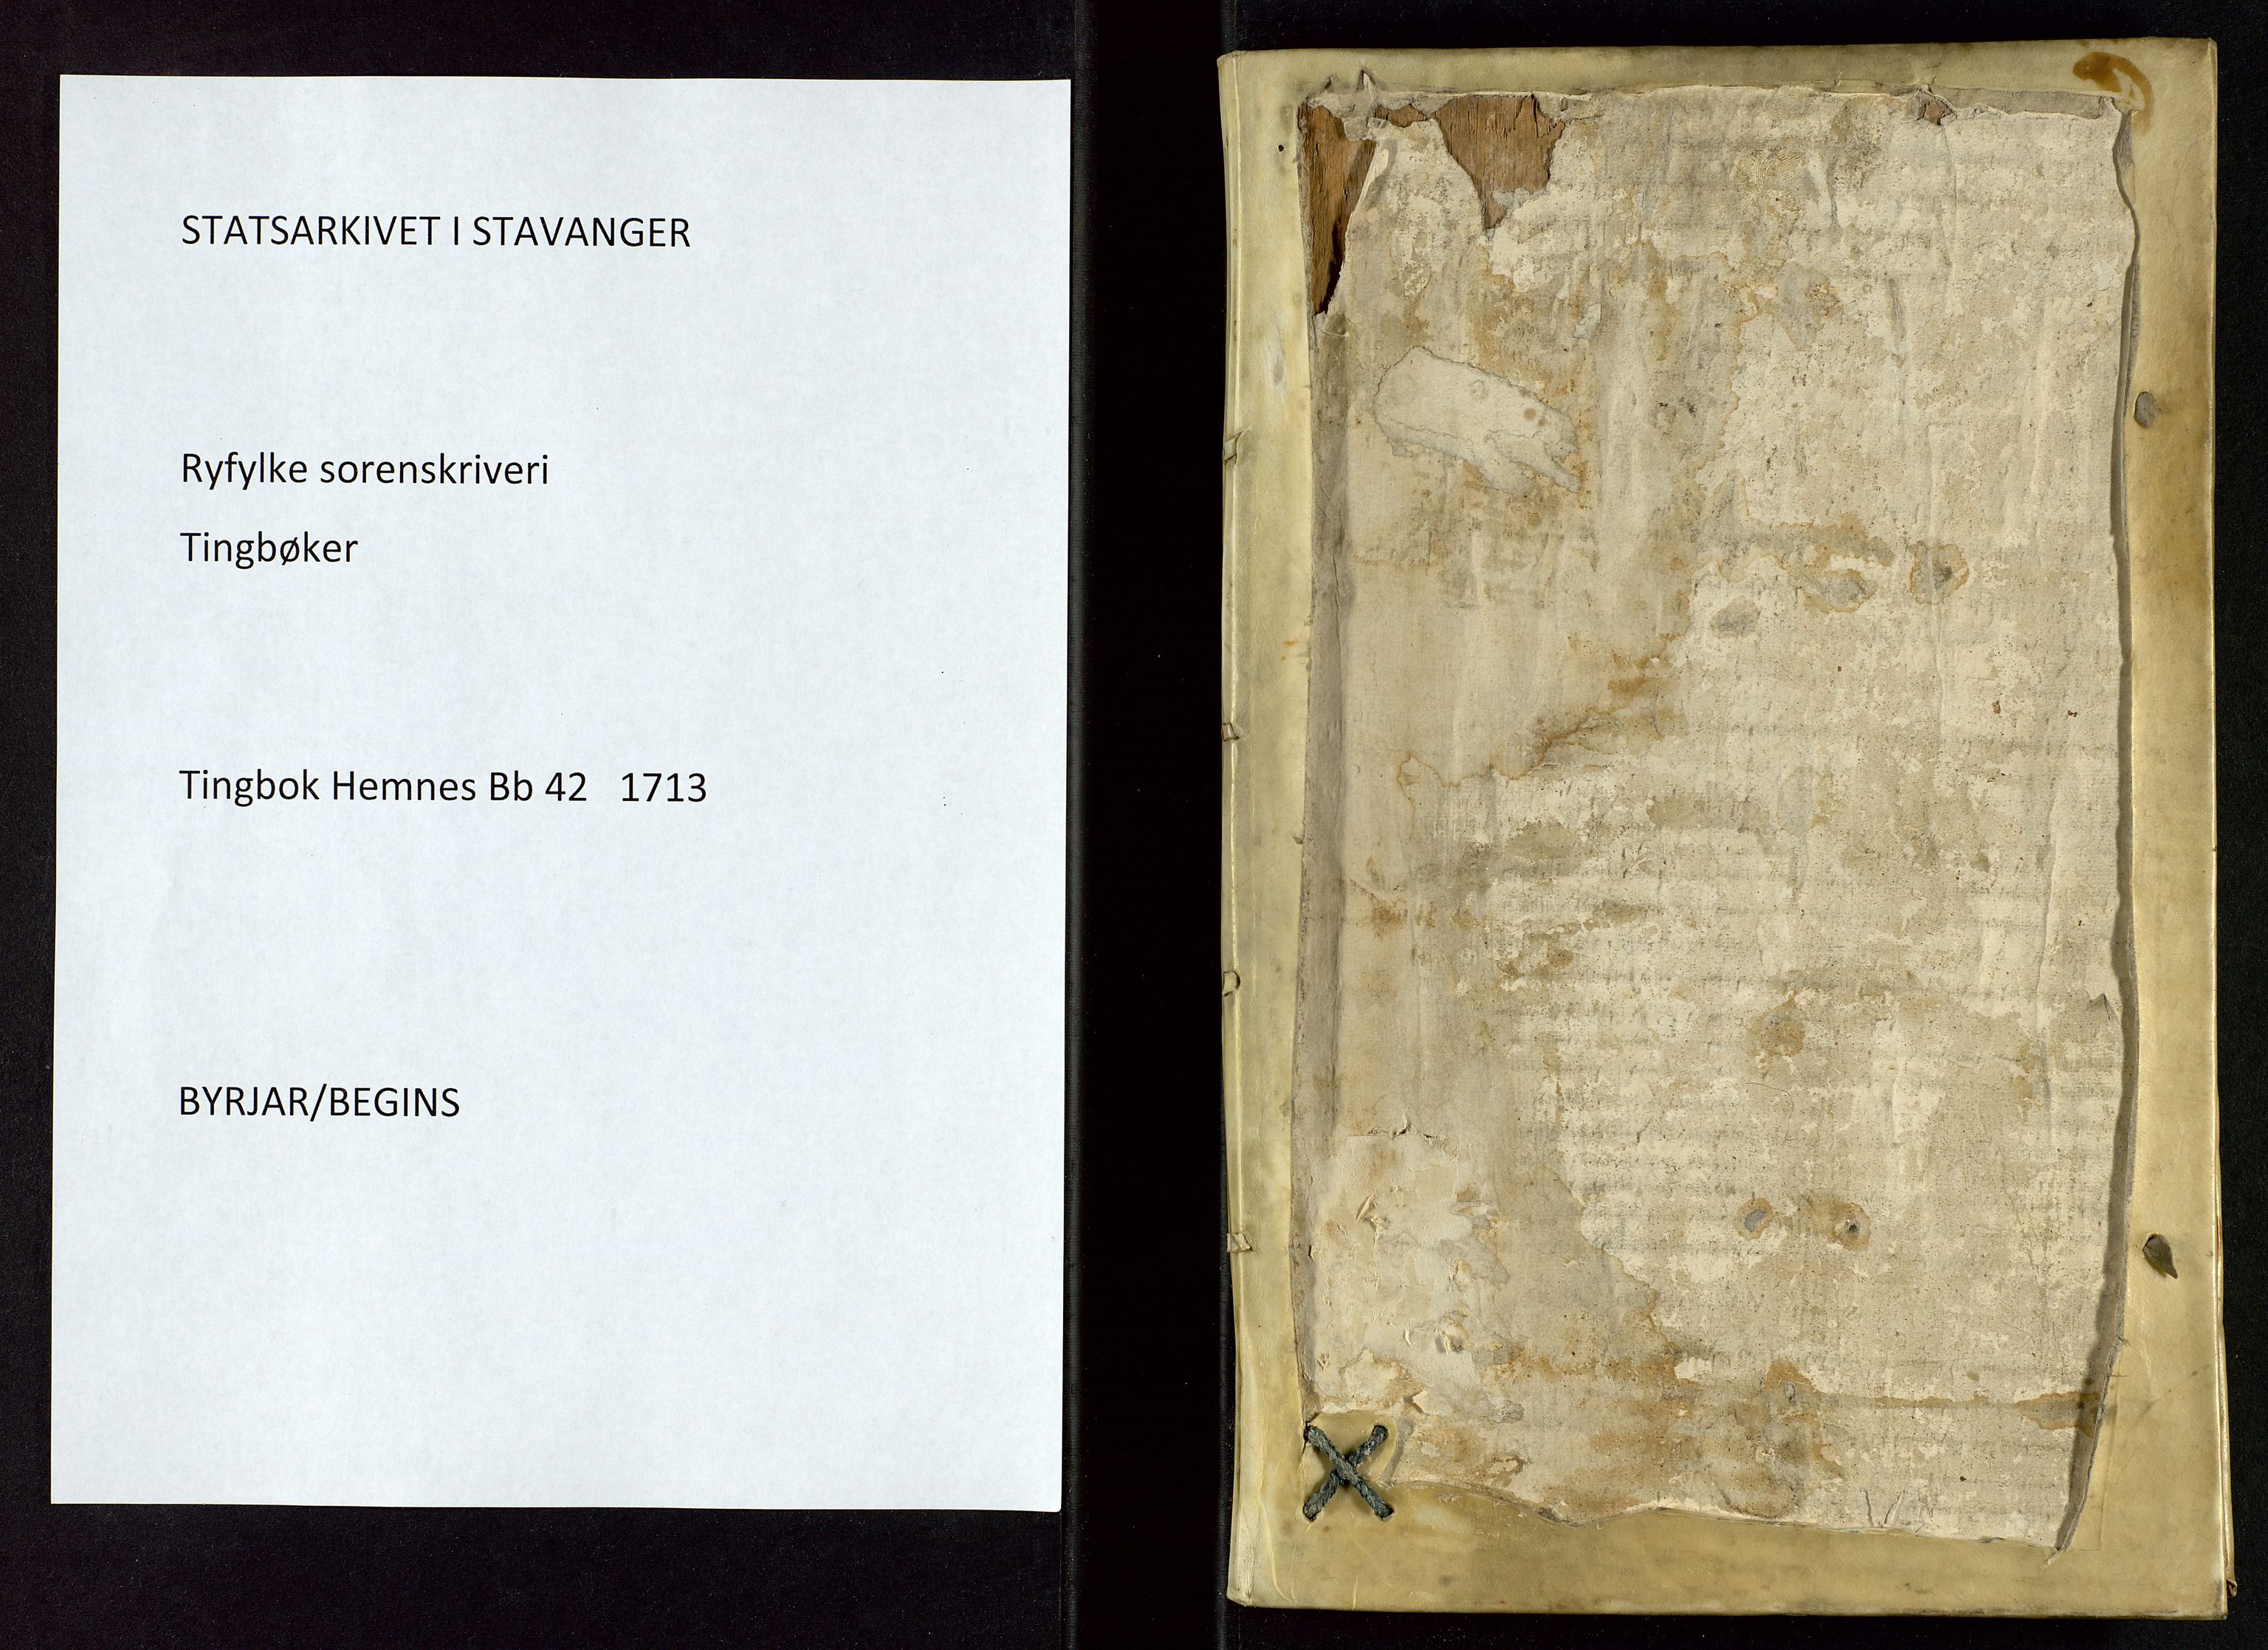 STATSARKIVET I STAVANGER
Ryfylke sorenskriveri
Tingbøker
Tingbok Hemnes Bb 42 1713
BYRJAR/BEGINS